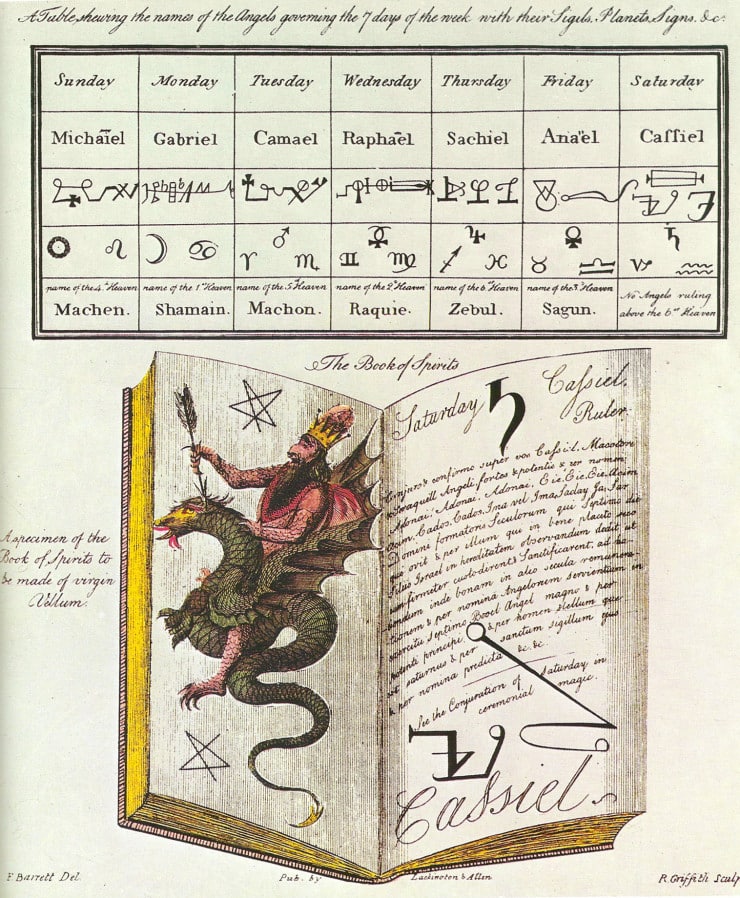 A Table shewing the names of the Angels governing the 7 days of the week with their Sigils, Planets, Signs, &c.
Sunday Monday Tuesday Wednesday Thursday Friday Saturday
Michaïel Gabriel Camael Raphaël Sachiel Anaël Caſſiel
☉ ♌ ☽ ♋ ♂ ♈ ♏ ☿ ♊ ♍ ♃ ♐ ♓ ♀ ♉ ♎ ♄ ♑ ♒
name of the 4th Heaven name of the 1st Heaven name of the 5th Heaven name of the 2d Heaven name of the 6th Heaven name of the 3d Heaven No Angels ruling
Machen. Shamain. Machon. Raquie. Zebul. Sagun. above the 6th Heaven
The Book of Spirits
Saturday ♄ Caſſiel.
Ruler.
Conjuro & confirmo super vos Caſſiel, Macoton
& Seraquiell Angeli fortes & potentis & per nomen
Adonai. Adonai. Adonai. Eie. Eie. Eie. Acim
Acim. Cados. Cados. Ima vel Ima. Saday Ja. Sar
Domini formatoris Seculorum qui Septimo die
quievit & per illum qui in bene placito suo
filiis Israel in hereditatem observandum dedit ut
eum firmiter custodirent & Sanctificarent, ad
habendum inde bonam in alio secula remunera-
tionem & per nomina Angelorum servientium in
exercitu Septimo Booel Angel magno & per
potenti principi & per nomen stellum que
est saturnus & per sanctum sigillum ejus
& per nomina predicta &c. &c.
See the Conjuration of Saturday in
ceremonial magic.
Caſſiel.
A specimen of the
Book of Spirits to
be made of virgin
Vellum.
F. Barrett Del. Pub. by Lackington & Allen R. Griffith Sculp